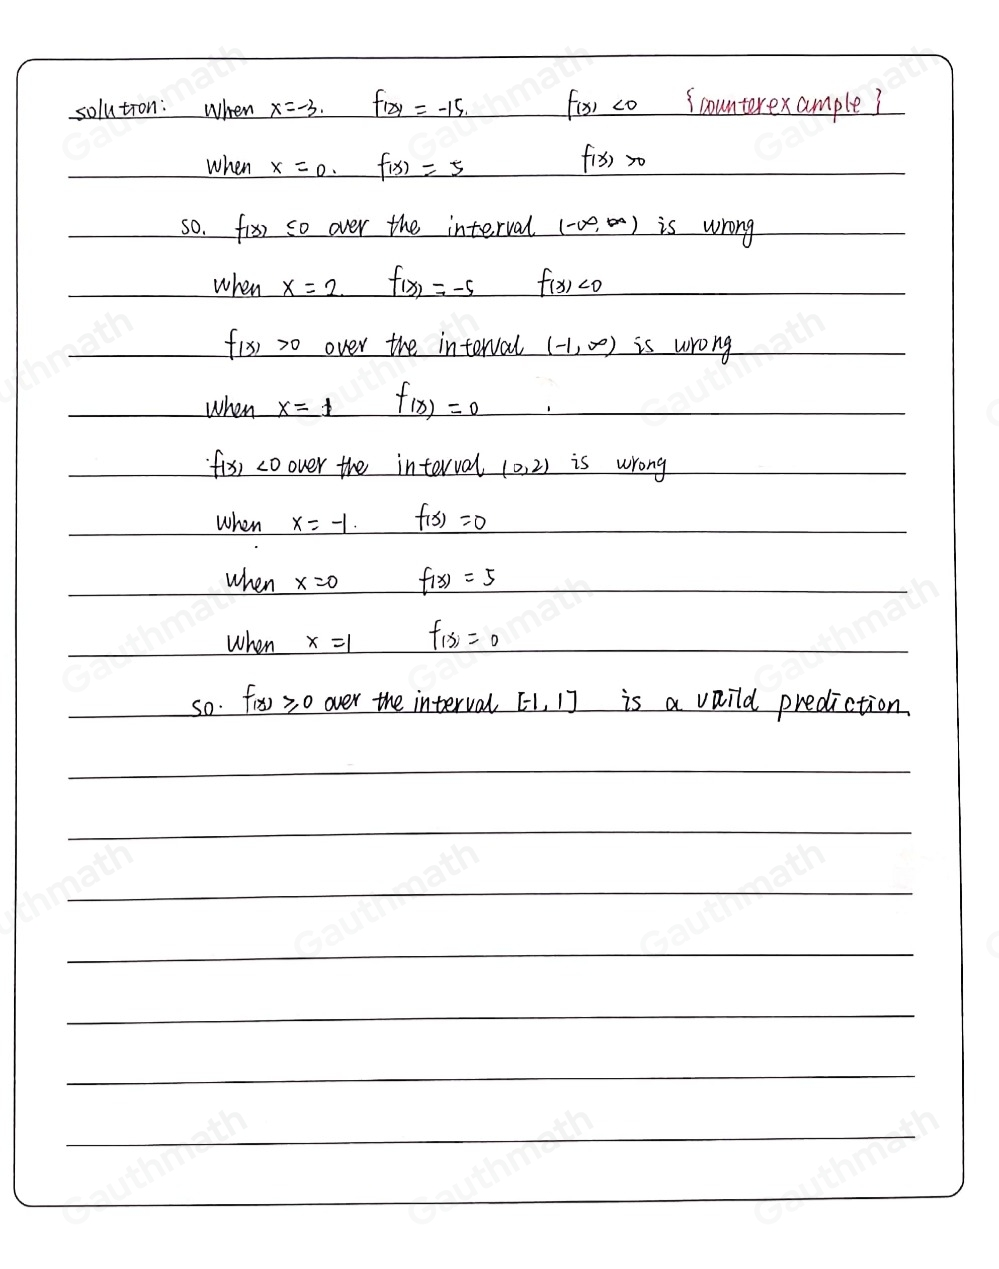 solutron: When x=-3. f(x) = -15. f(x) <0 {counterexample}
When x = 0. f(x) = 5 f(x) >0
so. f(x) ≤0 over the interval (-∞, ∞) is wrong
When x = 2. f(x) = -5 f(x) <0
f(x) >0 over the interval (-1, ∞) is wrong
When x = 1 f(x) = 0
f(x) <0 over the interval (0,2) is wrong
When x = -1. f(x) =0
When x =0 f(x) = 5
When x =1 f(x) = 0
so. f(x) ≥0 over the interval [-1, 1] is a vaild prediction.
Gauthmath